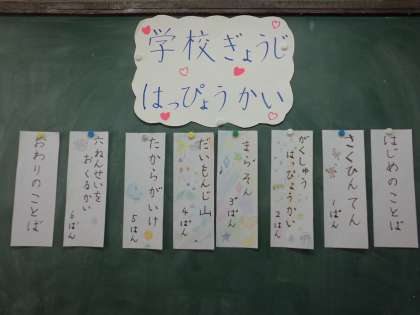 学校ぎょうじ
はっぴょうかい
はじめのことば
さくひんてん
1ばん
がくしゅう
はっぴょうかい
2ばん
まらそん
3ばん
だいもんじ山
4ばん
たからがいけ
5ばん
六ねんせいを
おくるかい
6ばん
おわりのことば